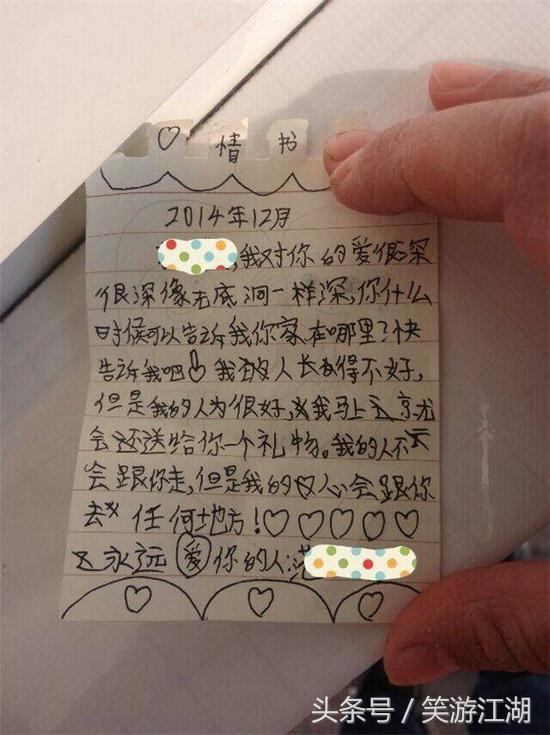 ♡ 情书
2014年12月
,我对你的爱很深
很深像无底洞一样深,你什么
时候可以告诉我你家在哪里?快
告诉我吧 我的人长有得不好,
但是我的人为很好,我马上
会还送给你一个礼物。我的人不
会跟你走,但是我的心会跟你
去 任何地方!♡♡♡♡♡
永远爱你的人:
♡ ♡ ♡
头条号 / 笑游江湖